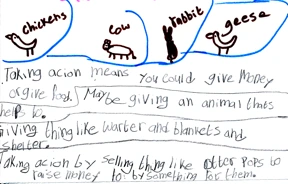 chickens
cow
rabbit
geese
Taking acion means you could give money
or give food. Maybe giving an animal thats
helps to.
Giving thing like warter and blankets and
shelter.
Taking acion by selling thing like otter pops to
raise money to by something for them.